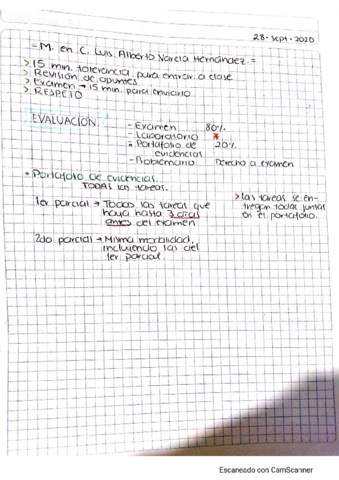 28 · sept · 2020
= M. en C. Luis Alberto Varela Hernández. =
> 15 min. tolerancia para entrar a clase
> Revisión de apuntes
> Examen → 15 min. para enviarlo
> RESPETO
EVALUACIÓN.
- Examen 80%
- Laboratorio *
- Portafolio de evidencias 20%
- Problemario Derecho a examen
• Portafolio de evidencias.
TODAS las tareas.
1er parcial → Todas las tareas que
haya hasta 3 días
antes del examen
> las tareas se en-
tregan todas juntas
en el portafolio.
2do parcial → Misma modalidad,
incluyendo las del
1er. parcial.
Escaneado con CamScanner